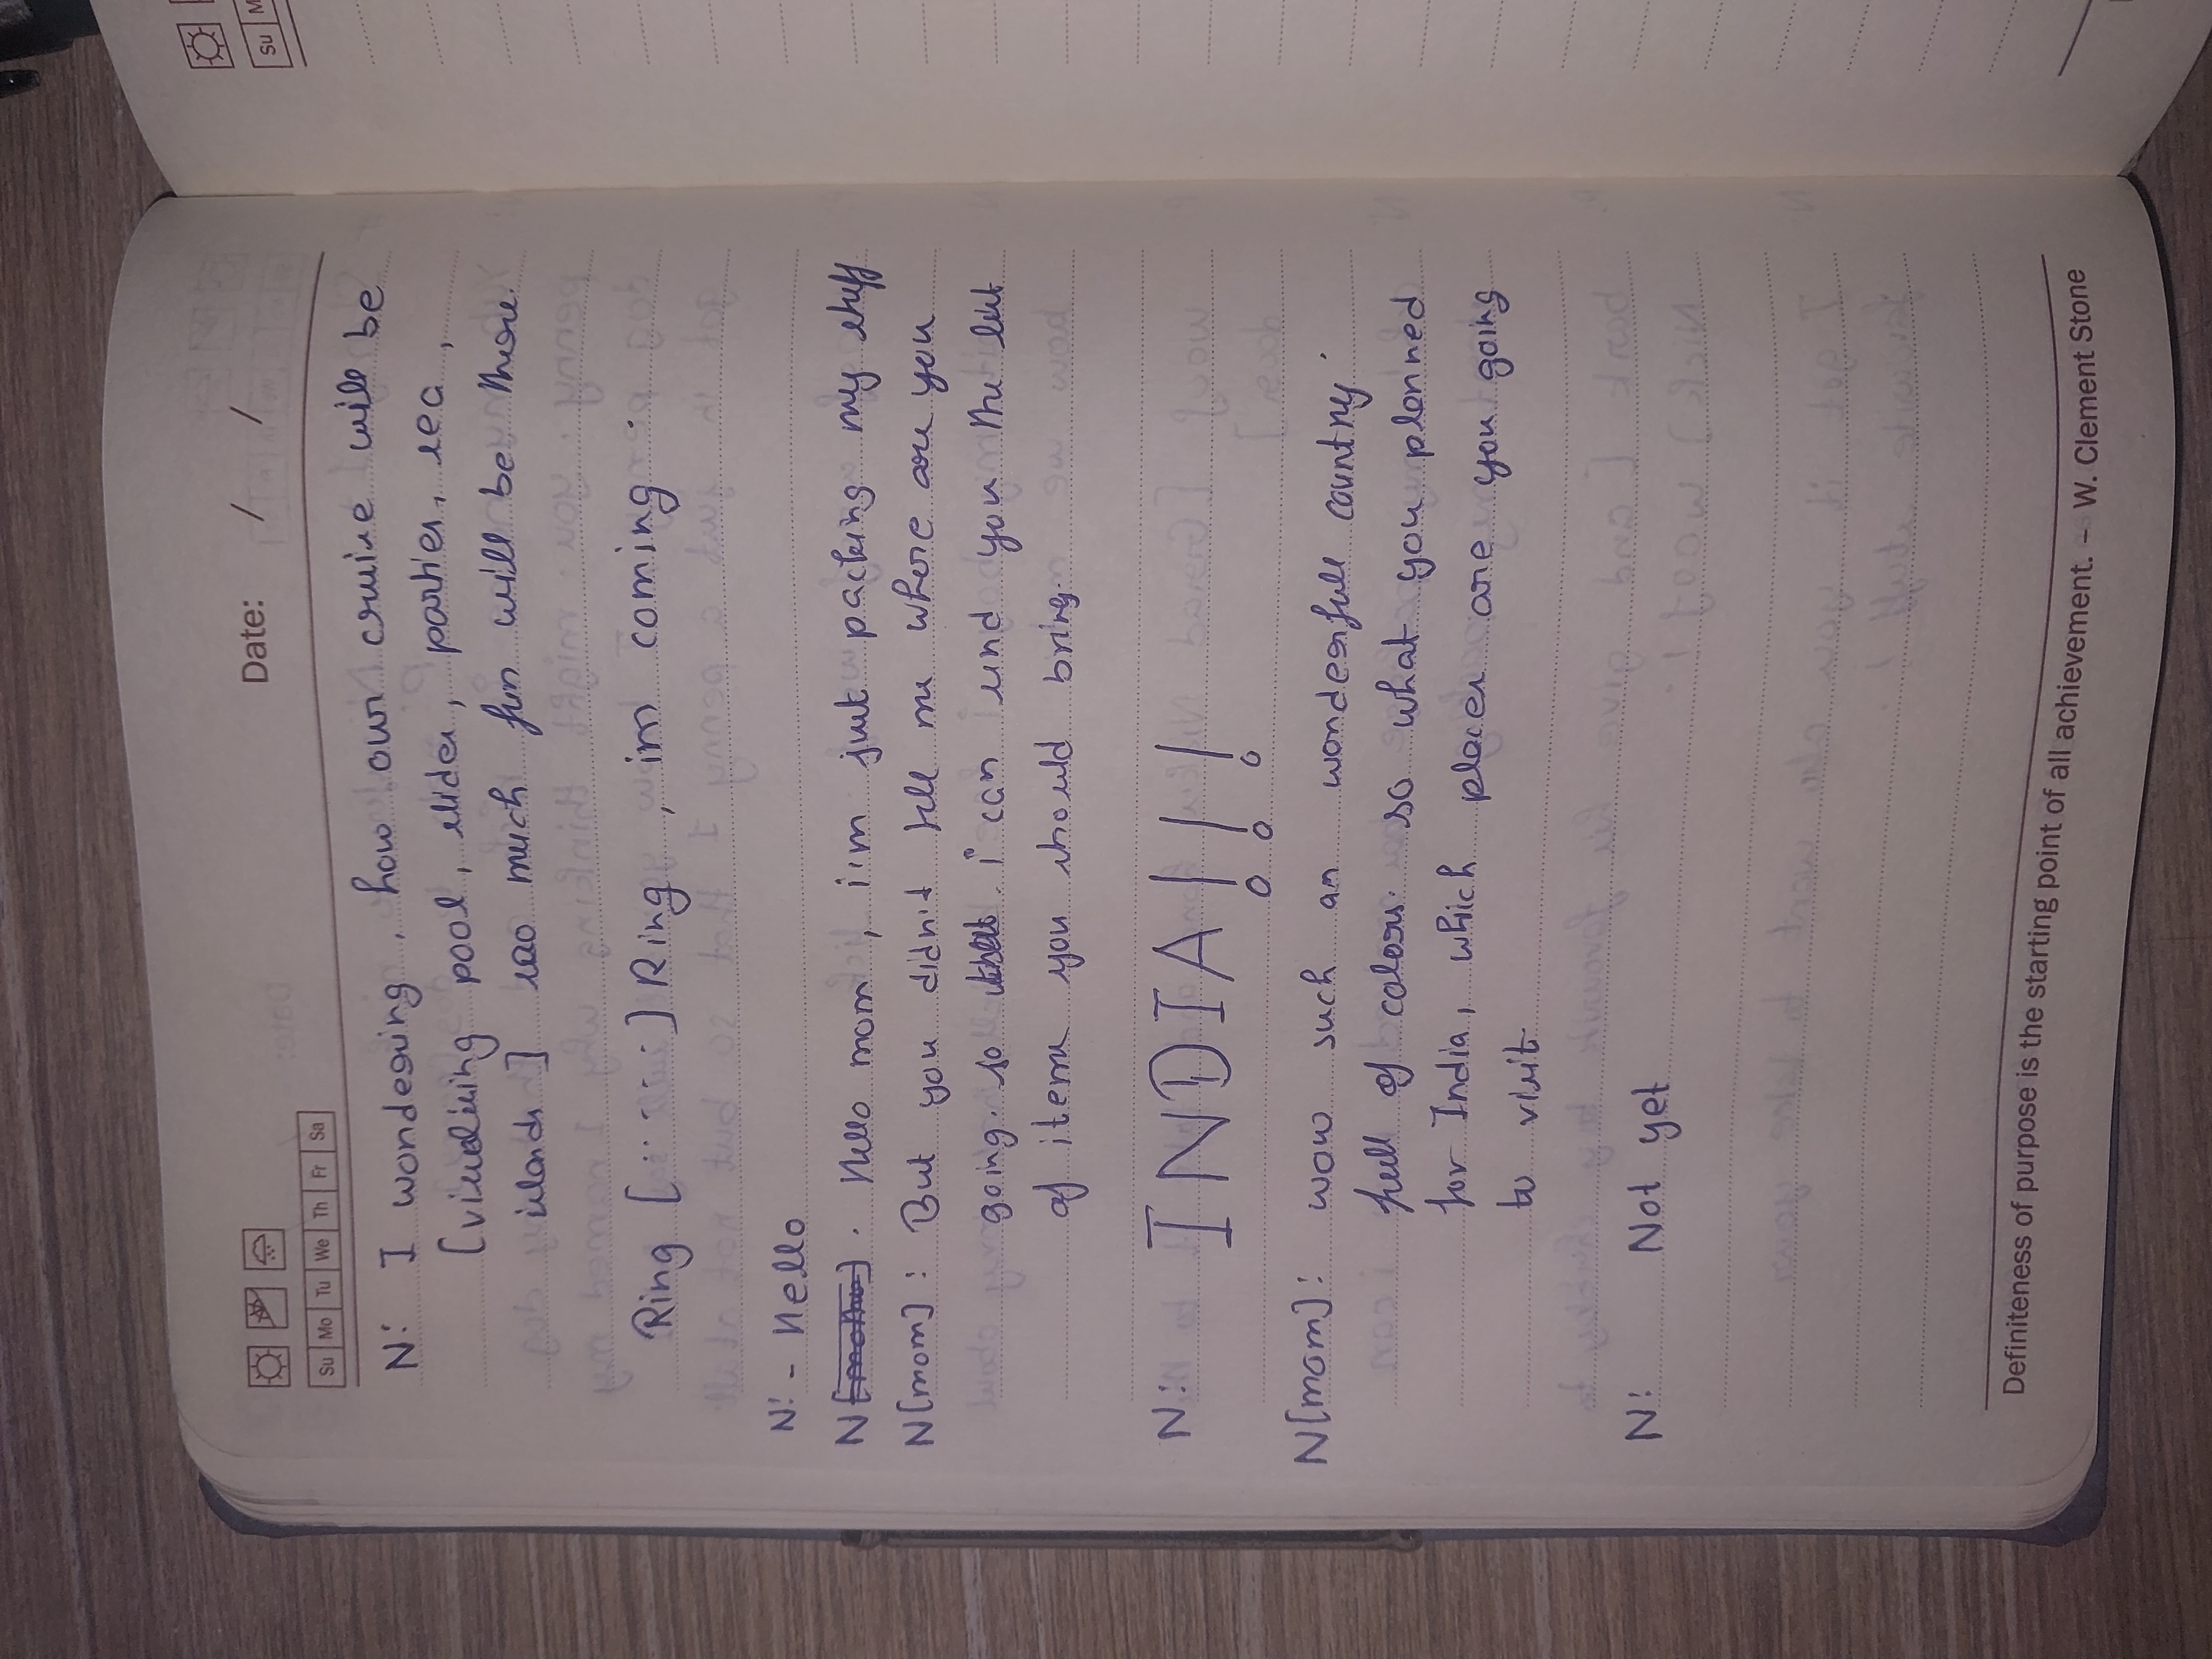 Date: / /
Su Mo Tu We Th Fr Sa
N: I wondering, how our cruise will be
[visulising pool, slides, parties, sea,
islands] soo much fun will be there.
Ring [.. - - - ..] Ring, im coming.
N: - Hello
N[mother]. Hello mom, i'm just packing my stuff
N[mom]: But you didn't tell me where are you
going. so i can send you the list
of items you should bring.
N: INDIA!!!
N[mom]: wow such an wonderfull country.
full of colors. so what you planned
for India, which places are you going
to visit.
N: Not yet
Definiteness of purpose is the starting point of all achievement. – W. Clement Stone
Su